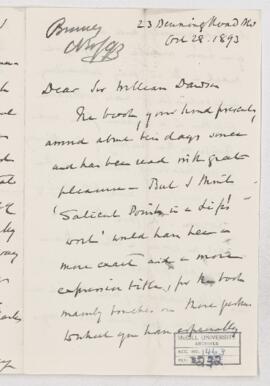 23 Denning Road NW
Oct 28. 1893
Dear Sir William Dawson
The book, your kind present,
arrived about ten days since
and has been read with great
pleasure — But I think
'Salient Points in a Life's
work' would have been a
more exact and a more
expressive title, for the book
mainly touches on those
to which you have especially
McGILL UNIVERSITY
ARCHIVES
ACC. NO. 1463
REF.